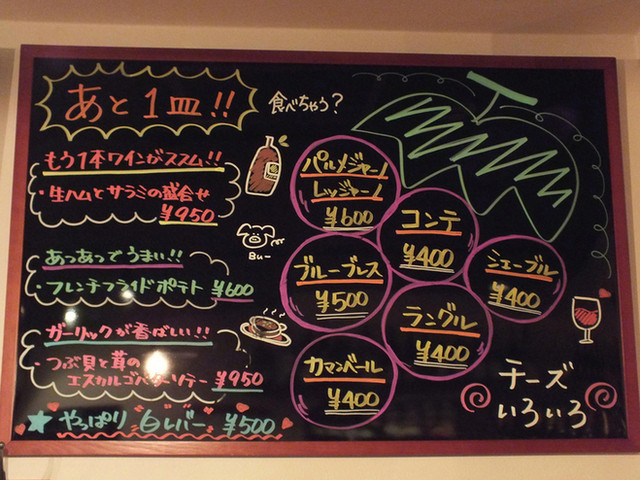 あと1皿!!
食べちゃう?
もう1本ワインがススム!!
・生ハムとサラミの盛合せ
¥950
Bu-
あっあっでうまい!!
・フレンチフライドポテト ¥600
ガーリックが香ばしい!!
・つぶ貝と茸の
エスカルゴバターソテー ¥950
★やっぱり 白レバー ¥500
パルメジャーノ
レッジャーノ
¥600
コンテ
¥400
ブルーブレス
¥500
シェーブル
¥400
ラングル
¥400
カマンベール
¥400
チーズ
いろいろ